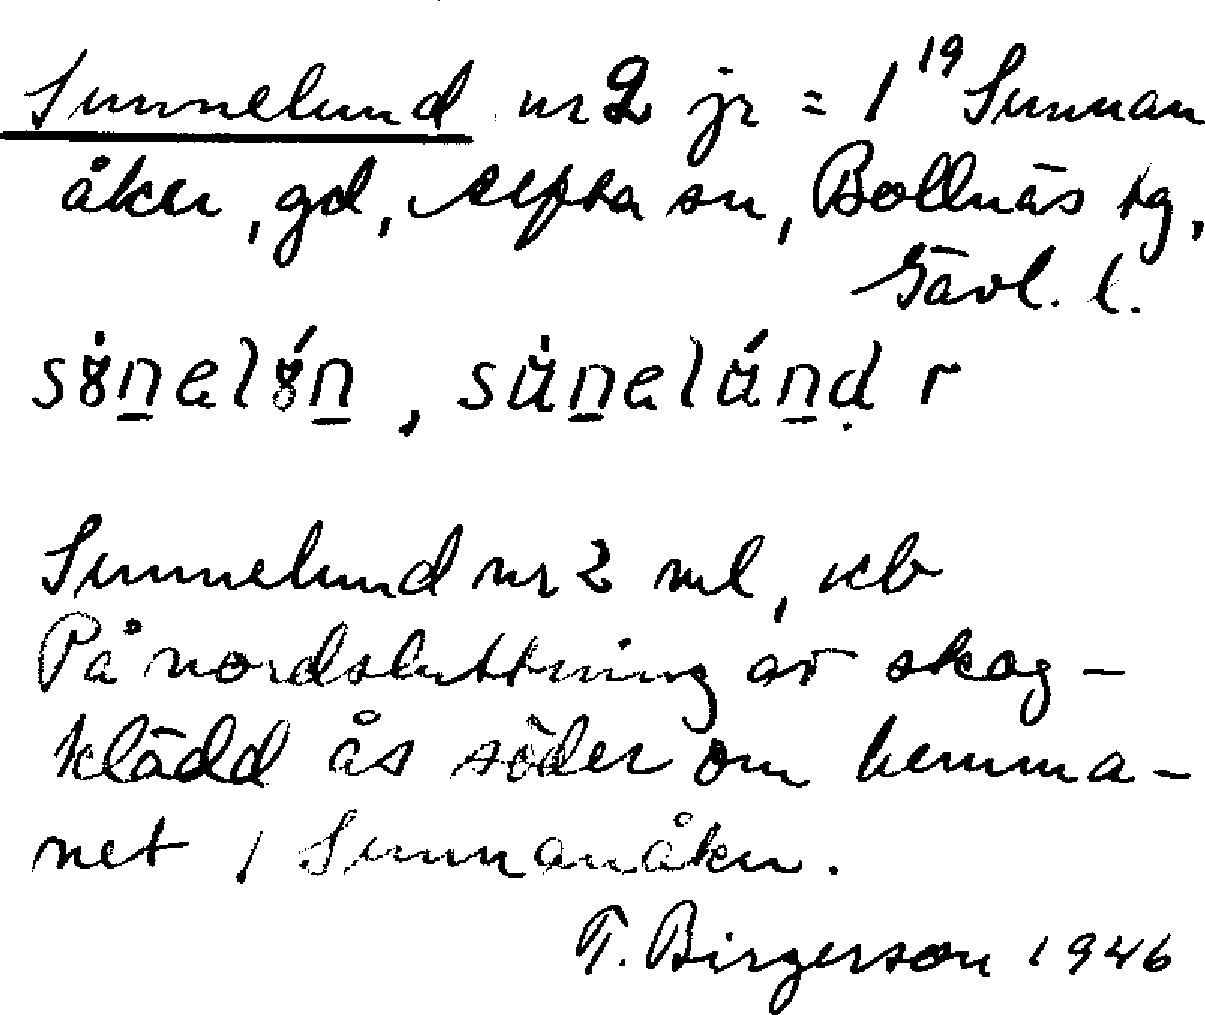 Sunnelund nr 2 jr = 1¹⁹ Sunnan
åker, gd, Alfta sn, Bollnäs tg,
Gävl. l.
Sunnelund nr 2 ml, kb
På nordsluttning av skog-
klädd ås söder om hemma-
net 1 Sunnanåker.
T. Birgerson 1946